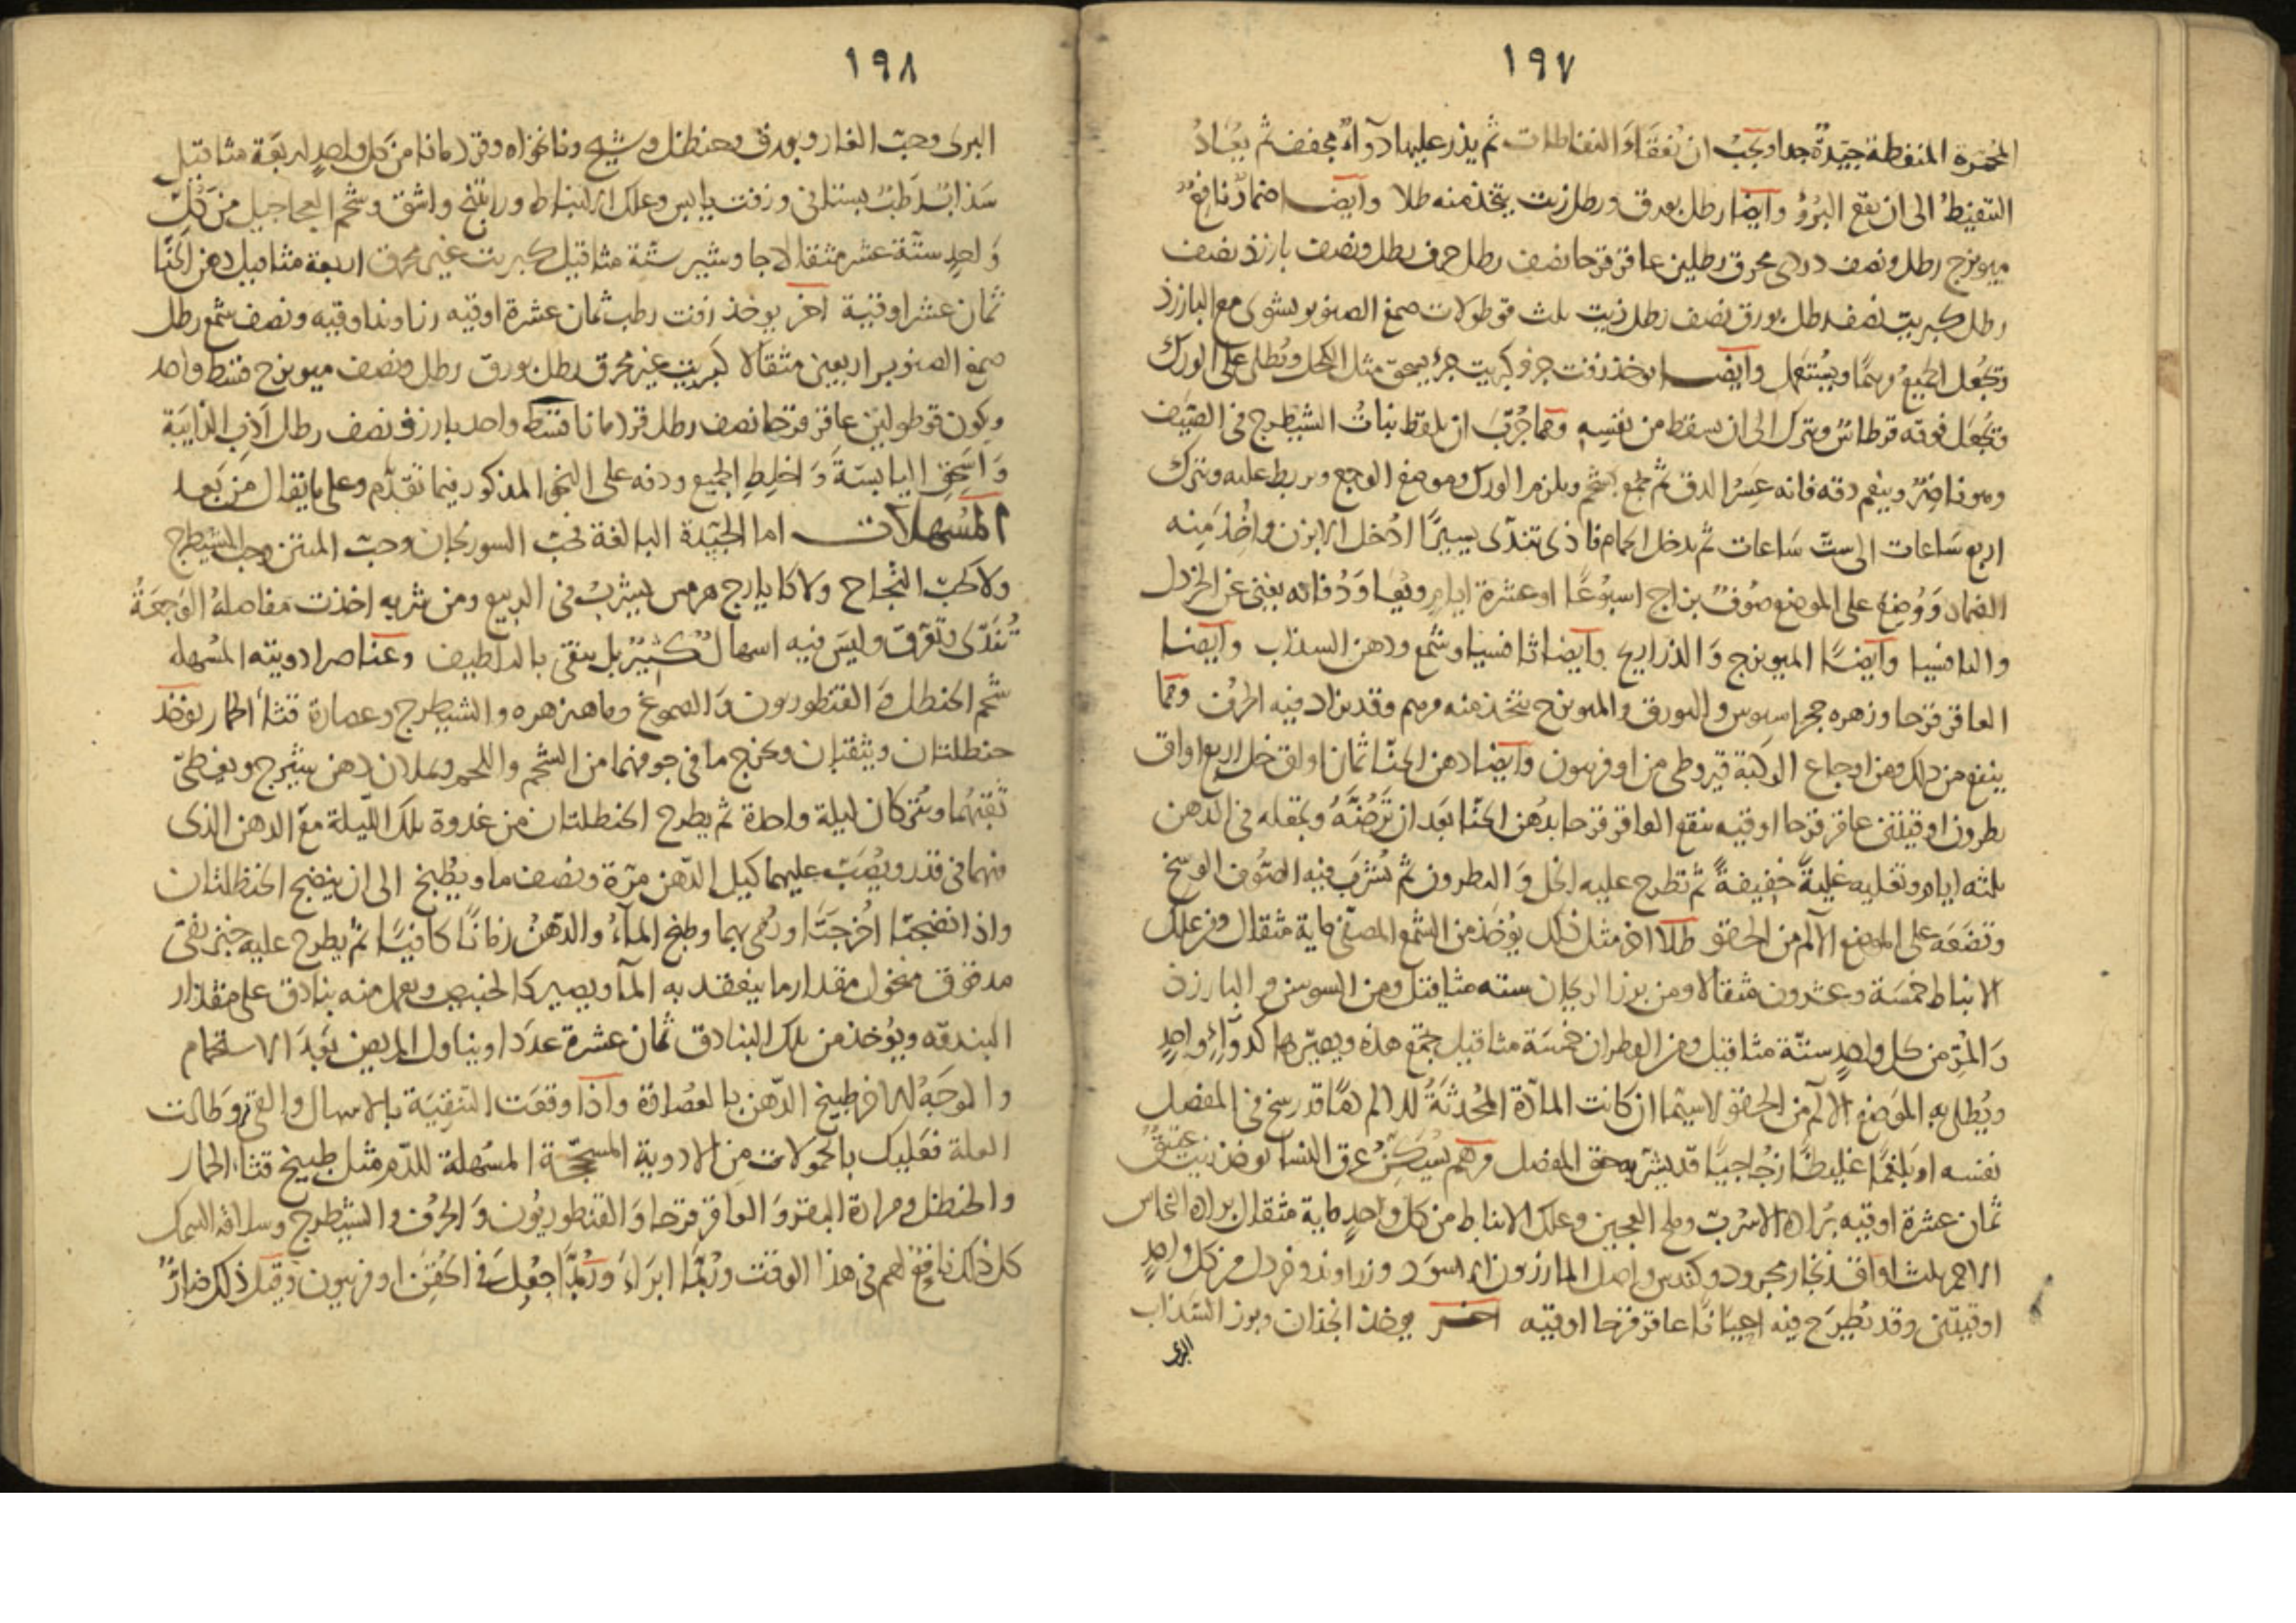 ١٩٧
المحمرة المنفطة جيدة جدا ويجب ان تفقأ النفاطات ثم يذر عليها دوآء مجفف ثم يعاد
التنفيط الى ان يقع البرؤ وايضا رطل بورق ورطل زيت يتخذ منه طلا وايضا ضماد نافع
ميويزج رطل ونصف دردى محرق رطلين عاقرقرحا نصف رطل حرف رطل ونصف بارزد نصف
رطل كبريت نصف رطل بورق نصف رطل زيت ثلث قوطولات صمغ الصنوبر يشوى مع البارزد
وتجعل الجميع مرهمًا ويستعمل وايضا يوخذ زفت جزء كبريت جزء يسحق مثل الكحل ويطلى على الورك
وتجعل فوقه قرطاس ويترك الى ان يسقط من نفسه ومما جرب ان يلقط نبات الشيطرج فى الصيف
وهو ناضر وينعم دقه فانه عسر الدق ثم يجمع بشحم ويلزم الورك وموضع الوجع ويربط عليه ويترك
اربع ساعات الى ست ساعات ثم يدخل الحمام فاذى تندى يسيرًا ادخل الابزن واخذ منه
الضماد ووضع على الموضع صوف بزاج اسبوعًا او عشرة ايام ويعاود فانه يغنى عن الخردل
والثافسيا وايضًا الميويزج والذراريح وايضا ثافسيا وشمع ودهن السذاب وايضا
العاقرقرحا وزهره حجر اسيوس والبورق والميويزج يتخذ منه مرهم وقد يزاد فيه الحرف ومما
ينفع من ذلك ومن اوجاع الركبة قيروطى من اوفربيون وايضا دهن الحنا ثمان اواق خل اربع اواق
نطرون اوقيتين عاقرقرحا اوقيه ينقع العاقرقرحا بدهن الحنا بعد ان ترضه وتجعله فى الدهن
ثلثه ايام وتغليه غلية خفيفة ثم تطرح عليه الخل والنطرون ثم تشرب فيه الصوف الوسخ
وتضعه على الموضع الالم من الحقو طلا اخر مثل ذلك يؤخذ من الشمع المصفى ماية مثقال ومن علك
الانباط خمسة وعشرون مثقالا ومن بزر الريحان سته مثاقيل ومن السوسن والبارزد
والمر من كل واحد ستة مثاقيل ومن القطران خمسة مثاقيل جمع هذه ويصيرها كدوآء واحد
ويطلى به الموضع الالم من الحقو لاسيما ان كانت المادة المحدثة للالم دمًا قد رسخ فى المفصل
نفسه او بلغمًا غليظًا زجاجيًا قد يشربه حق المفصل مرهم يسكن عرق النسا يوخذ زيت عتيق
ثمان عشرة اوقيه براده الاسرب وملح العجين وعلك الانباط من كل واحد ماية مثقال براده النحاس
الاحمر ثلث اواق زنجار مجرود وكندس واصل المازريون الاسود وزراوند وخردل من كل واحد
اوقيتين وقد يطرح فيه احيانًا عاقرقرحا اوقيه اخر يوخذ انجذان وبزر السذاب
البرى
١٩٨
البرى وحب الغار وبورق وحنظل وشيح ونانخواه وقردمانا من كل واحد اربعة مثاقيل
سذاب رطب بستانى وزفت يابس وعلك الانباط وراتينج واشق وشحم العجاجيل من كل
واحد ستة عشر مثقالا جاوشير ستة مثاقيل كبريت غير محرق اربعة مثاقيل دهن الحنا
ثمان عشر اوقية اخر يوخذ زفت رطب ثمان عشرة اوقيه زراوند اوقيه ونصف شمع رطل
صمغ الصنوبر اربعين مثقالا كبريت غير محرق رطل بورق رطل ونصف ميويزج قسط واحد
ويكون قوطولين عاقرقرحا نصف رطل قردمانا قسط واحد بارزد نصف رطل اذب الذايبة
واسحق اليابسة واخلط الجميع ودفه على النحو المذكور فيما تقدم وعلى ما يقال من بعد
المسهلات اما الجيدة البالغة فحب السورنجان وحب المنتن وحب الشيطرج
ولا كحب النجاح ولا كايارج هرمس يشرب فى الربيع ومن شربه اخذت مفاصله الوجعة
تندى وتعرق وليس فيه اسهال كثير بل ينقى باللطيف وعناصر ادويته المسهله
شحم الحنطل والقنطوريون والصموغ وماهيزهره والشيطرج وعصارة قثا الحمار يوخذ
حنطلتان ويثقبان ويخرج ما فى جوفهما من الشحم واللحم ويملان دهن شيرج ويغطى
ثقبهما ويتركان ليلة واحدة ثم يطرح الحنطلتان من غدوة تلك الليلة مع الدهن الذى
فيهما فى قدر ويصب عليهما كيل الدهن مرة ونصف ما ويطبخ الى ان ينضج الحنظلتان
واذا نضجتا اخرجتا ورمى بهما وطبخ المآء والدهن زمانًا كافيًا ثم يطرح عليه خبز نقى
مدقوق منخول مقدار ما ينعقد به المآ ويصير كالخبيص ويعمل منه بنادق على مقدار
البندقه ويؤخذ من تلك البنادق ثمان عشرة عددا ويناول المريض بعد الاستحمام
والموجه لهذا طبيخ الدهن بالعصافة واذا وقعت التنقية بالاسهال والقى وطالت
العلة فعليك بالحمولات من الادوية المسحجة المسهلة للدم مثل طبيخ قثا الحمار
والحنظل ومرارة البقر والعاقرقرحا والقنطوريون والحرف والشيطرج وسلاقه السمك
كل ذلك نافع لهم فى هذا الوقت وربما ابراء وربما جعل فى الحقن اوفربيون وقيل ذلك ضار